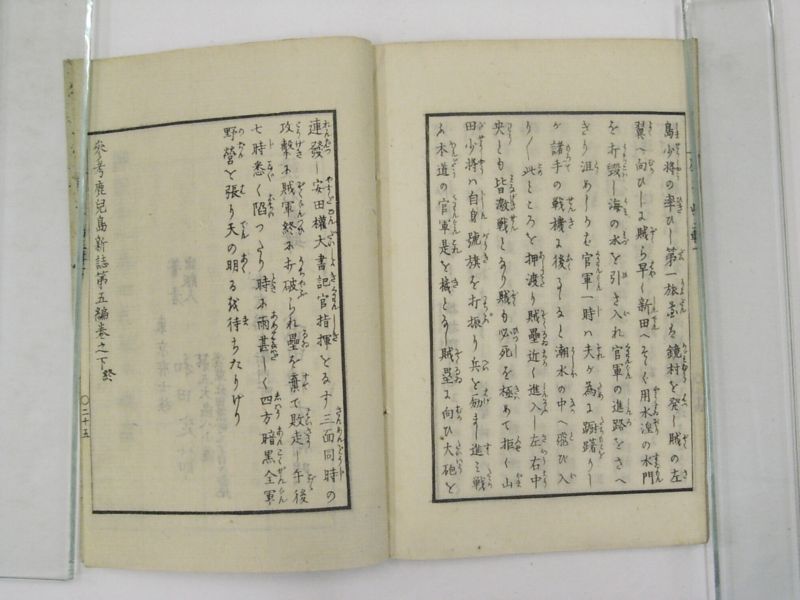 島少将の率ひし第一旅団は鏡村を発し賊の左
翼へ向ひしに賊ら早く新田へそゝぐ用水湟の水門
を打毀し海の水を引き入れ官軍の進路をさへ
ぎり沮めしりむ官軍一時ハ夫か為に躊躇りし
が諸手の戦機に後るゝと潮水の中へ飛び入
り〳〵此ところを押渡り賊壘近く進入し左右中
央とも皆激戦となり賊も必死を極めて拒く山
田少将ハ自身號旗を打振り兵を励まし進ミ戦
ふ本道の官軍是を機となし賊壘に向ひ大砲を
連發し安田權大書記官指揮となす三面同時の
攻撃に賊軍終に打破られ壘を棄て敗走し午後
七時悉く陥つたり時に雨甚しく四方暗黒全軍
野營を張り天の明るを待ちたりけり
参考鹿兒島新誌第五編巻之下終
〇二十五